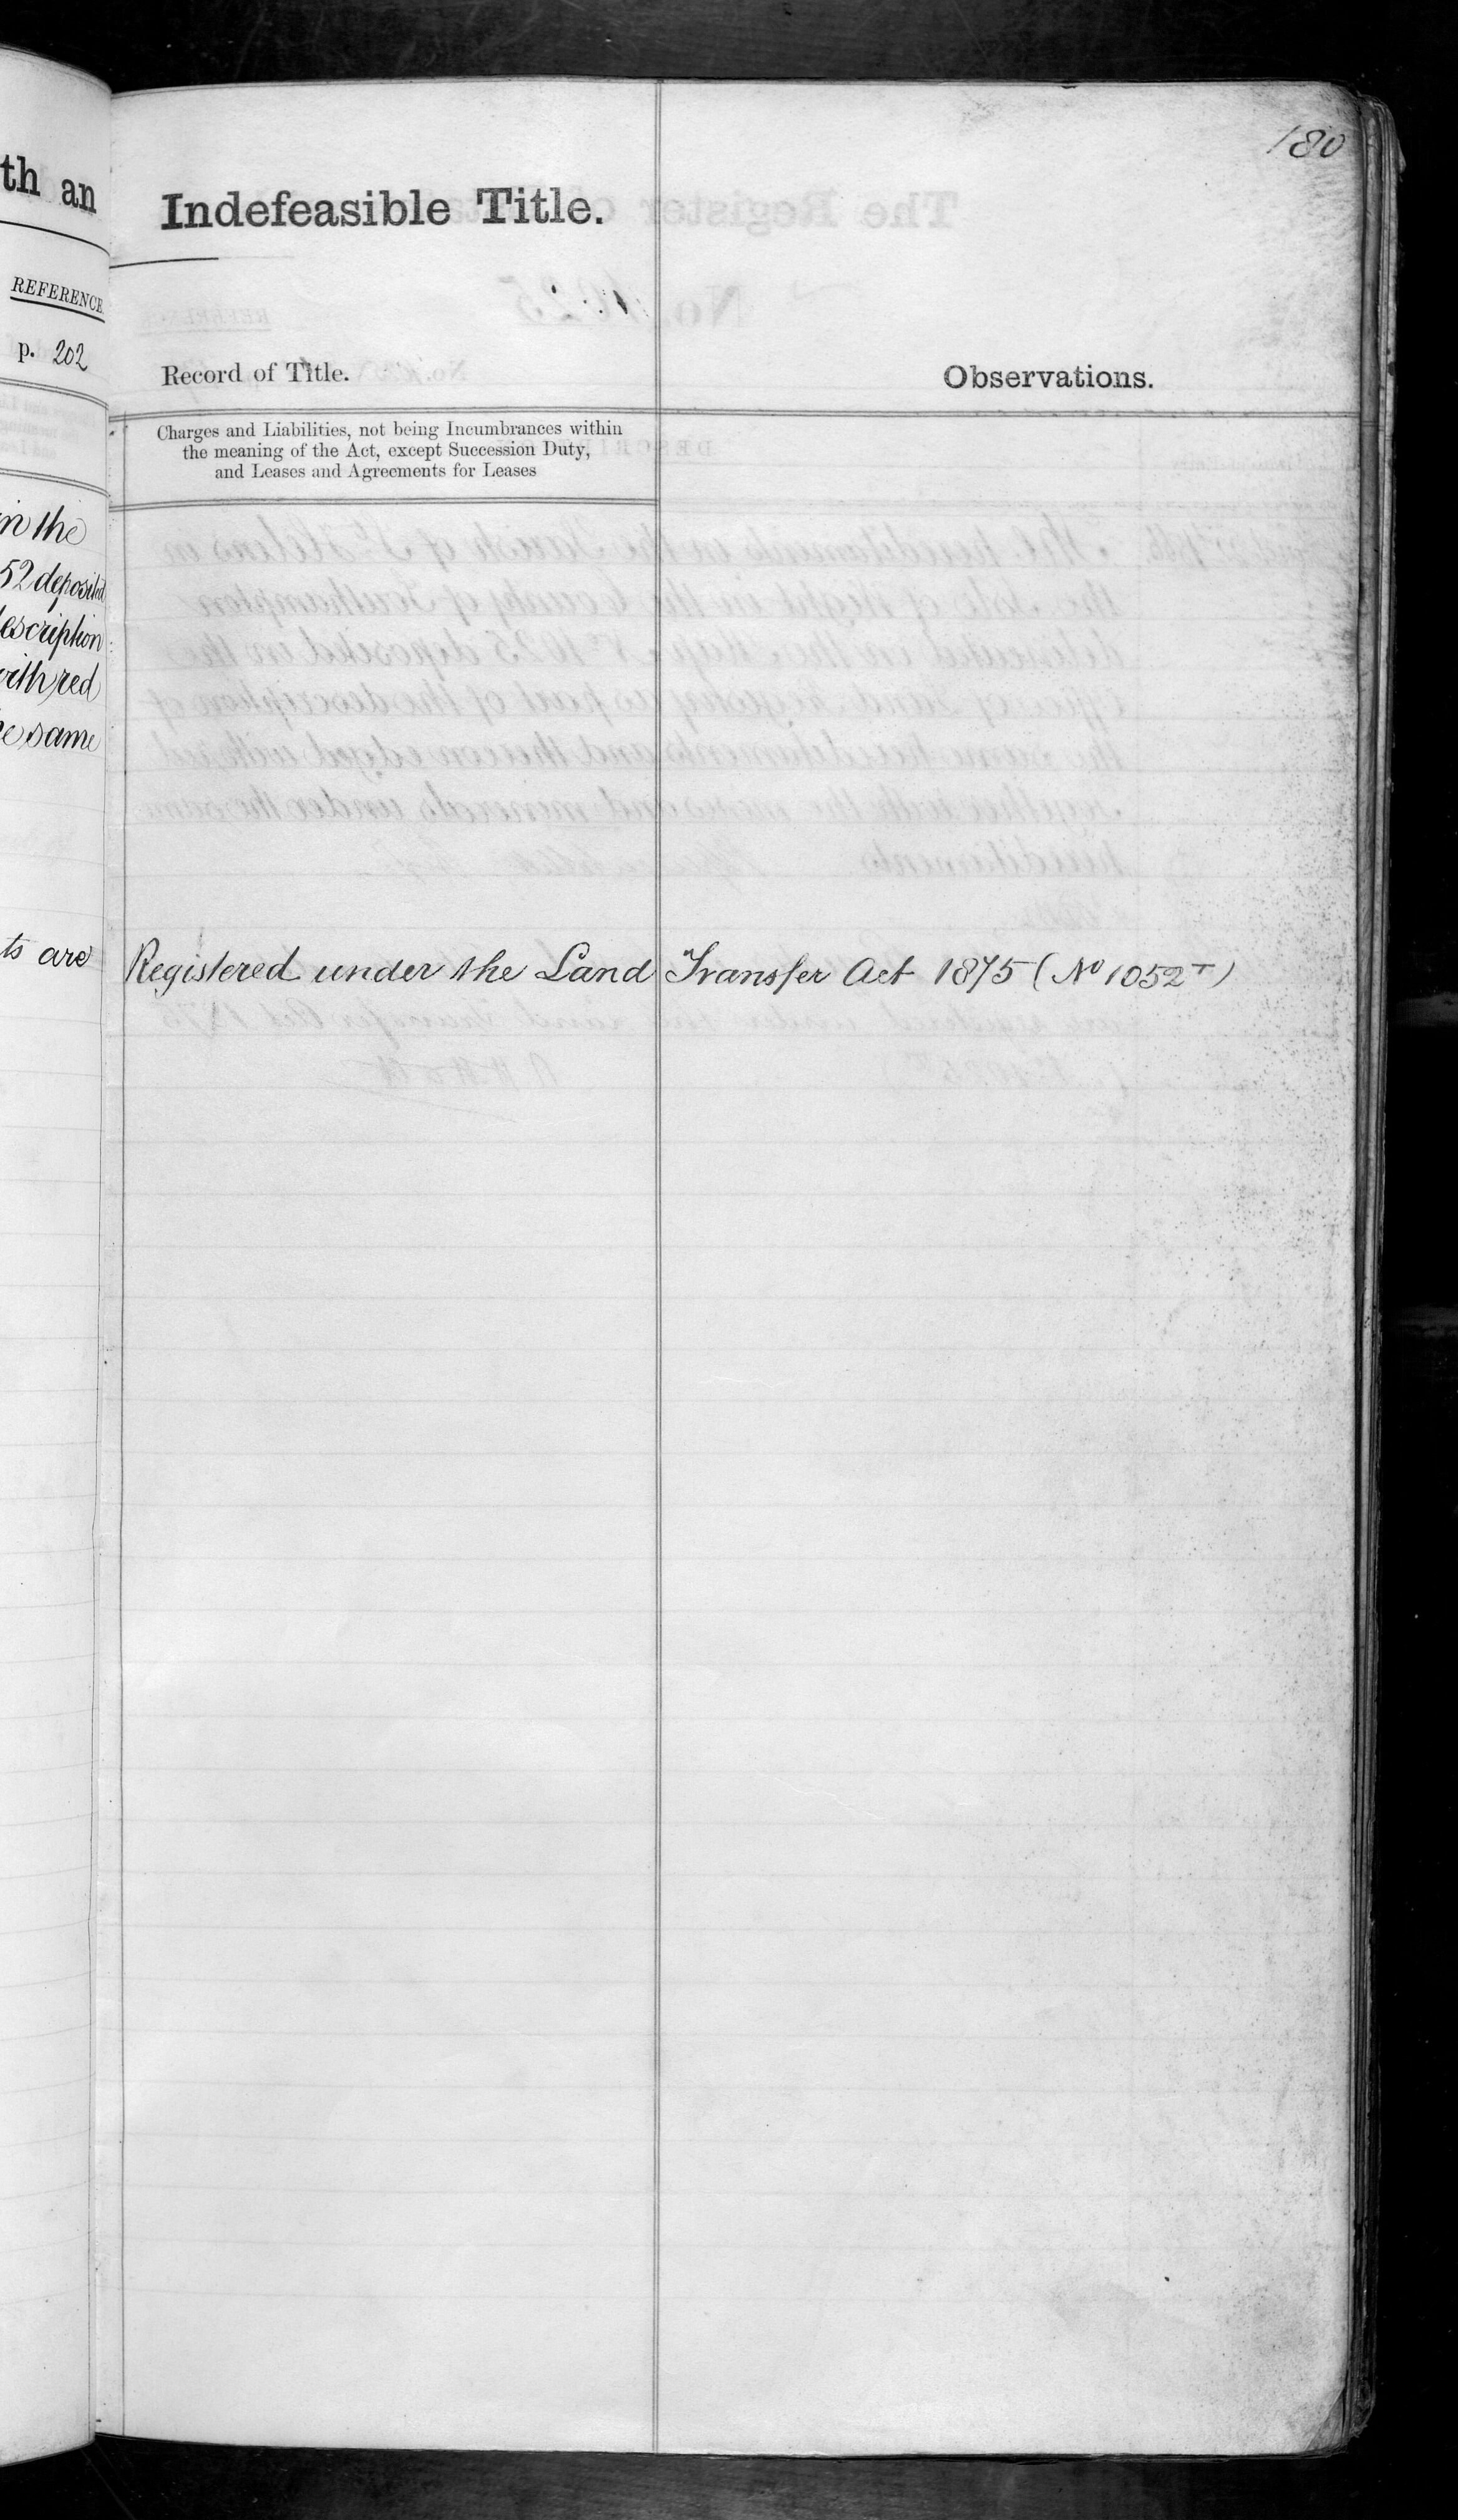 180
th an
Indefeasible Title.
REFERENCE
p. 202
Record of Title.
Observations.
Charges and Liabilities, not being Incumbrances within
the meaning of the Act, except Succession Duty,
and Leases and Agreements for Leases
in the
52 deposited
escription
with red
e same
ts are
Registered under the Land Transfer Act 1875 (No 1052 T)